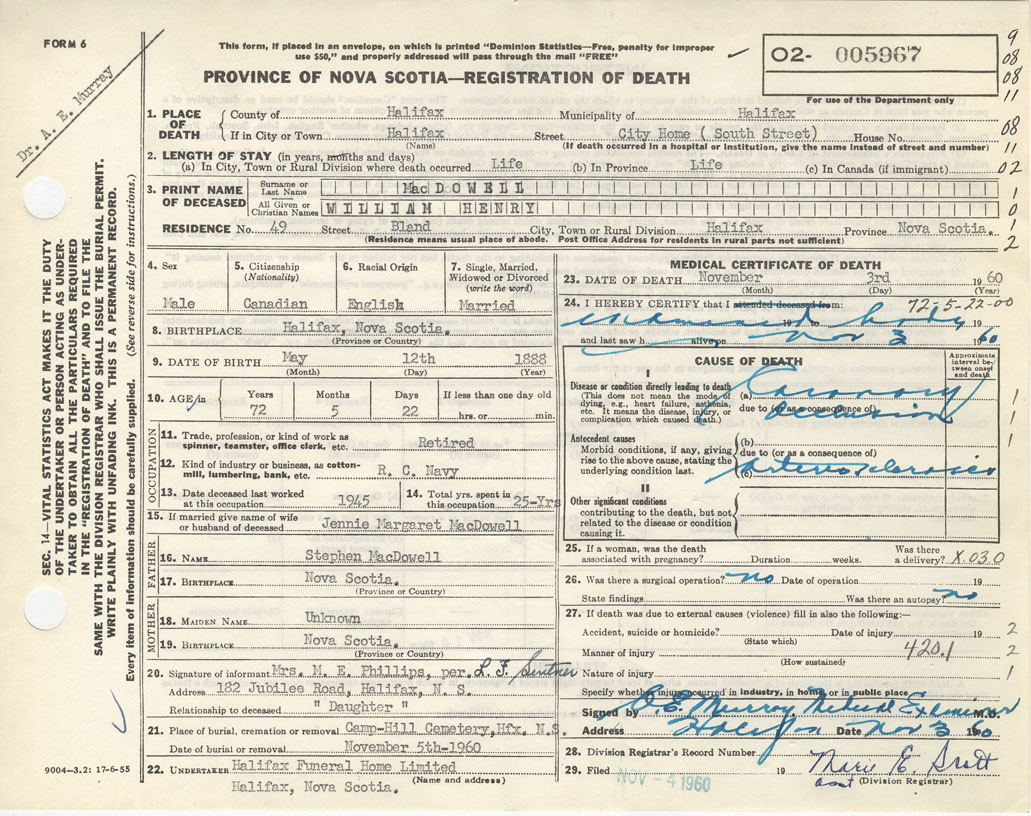 FORM 6
Dr. A. E. Murray
This form, if placed in an envelope, on which is printed "Dominion Statistics—Free, penalty for improper
use $50," and properly addressed will pass through the mail "FREE"
O2- 005967
For use of the Department only
PROVINCE OF NOVA SCOTIA—REGISTRATION OF DEATH
9
08
08
11
08
11
02
1
0
1
2
1. PLACE OF DEATH
County of Halifax Municipality of Halifax
If in City or Town Halifax Street City Home ( South Street) House No.
(Name) (If death occurred in a hospital or institution, give the name instead of street and number)
2. LENGTH OF STAY (in years, months and days)
(a) In City, Town or Rural Division where death occurred Life (b) In Province Life (c) In Canada (if immigrant)
3. PRINT NAME OF DECEASED
Surname or Last Name MacDOWELL
All Given or Christian Names WILLIAM HENRY
RESIDENCE No. 49 Street Bland City, Town or Rural Division Halifax Province Nova Scotia.
(Residence means usual place of abode. Post Office Address for residents in rural parts not sufficient)
4. Sex
Male
5. Citizenship (Nationality)
Canadian
6. Racial Origin
English
7. Single, Married, Widowed or Divorced (write the word)
Married
8. BIRTHPLACE Halifax, Nova Scotia.
(Province or Country)
9. DATE OF BIRTH May 12th 1888
(Month) (Day) (Year)
10. AGE in Years Months Days If less than one day old
72 5 22 hrs. or min.
OCCUPATION
11. Trade, profession, or kind of work as
spinner, teamster, office clerk, etc. Retired
12. Kind of industry or business, as cotton-
mill, lumbering, bank, etc. R. C. Navy
13. Date deceased last worked
at this occupation 1945
14. Total yrs. spent in
this occupation 25-Yrs
15. If married give name of wife
or husband of deceased Jennie Margaret MacDowell
FATHER
16. NAME Stephen MacDowell
17. BIRTHPLACE Nova Scotia.
(Province or Country)
MOTHER
18. MAIDEN NAME Unknown
19. BIRTHPLACE Nova Scotia.
(Province or Country)
20. Signature of informant Mrs. M. E. Phillips, per.
Address 182 Jubilee Road, Halifax, N. S.
Relationship to deceased " Daughter "
21. Place of burial, cremation or removal Camp-Hill Cemetery, Hfx. N.S.
Date of burial or removal November 5th-1960
22. UNDERTAKER Halifax Funeral Home Limited
(Name and address)
Halifax, Nova Scotia.
MEDICAL CERTIFICATE OF DEATH
23. DATE OF DEATH November 3rd 1960
(Month) (Day) (Year)
24. I HEREBY CERTIFY that I attended deceased from: 72-5-22-00
examined body 19 to
and last saw h alive on Nov 3 1960
CAUSE OF DEATH
Approximate interval between onset and death
I
Disease or condition directly leading to death
(This does not mean the mode of
dying, e.g., heart failure, asthenia,
etc. It means the disease, injury, or
complication which caused death.)
(a) Coronary
due to (or as a consequence of)
occlusion
1
1
1
Antecedent causes
Morbid conditions, if any, giving
rise to the above cause, stating the
underlying condition last.
(b)
due to (or as a consequence of)
(c) Arteriosclerosis
II
Other significant conditions
contributing to the death, but not
related to the disease or condition
causing it.
25. If a woman, was the death
associated with pregnancy? Duration weeks. Was there
a delivery? X.030
26. Was there a surgical operation? no Date of operation 19
State findings Was there an autopsy? no
27. If death was due to external causes (violence) fill in also the following:—
Accident, suicide or homicide? Date of injury 19 2
(State which)
Manner of injury 420.1 2
(How sustained)
Nature of injury 1
Specify whether injury occurred in industry, in home, or in public place
Signed by A.E. Murray Medical Examiner M.D.
Address Halifax Date Nov 3 1960
28. Division Registrar's Record Number
29. Filed NOV - 4 1960 19
Asst (Division Registrar)
SEC. 14—VITAL STATISTICS ACT MAKES IT THE DUTY
OF THE UNDERTAKER OR PERSON ACTING AS UNDER-
TAKER TO OBTAIN ALL THE PARTICULARS REQUIRED
IN THE "REGISTRATION OF DEATH" AND TO FILE THE
SAME WITH THE DIVISION REGISTRAR WHO SHALL ISSUE THE BURIAL PERMIT.
WRITE PLAINLY WITH UNFADING INK. THIS IS A PERMANENT RECORD.
Every item of information should be carefully supplied. (See reverse side for instructions.)
9004-3.2: 17-6-55